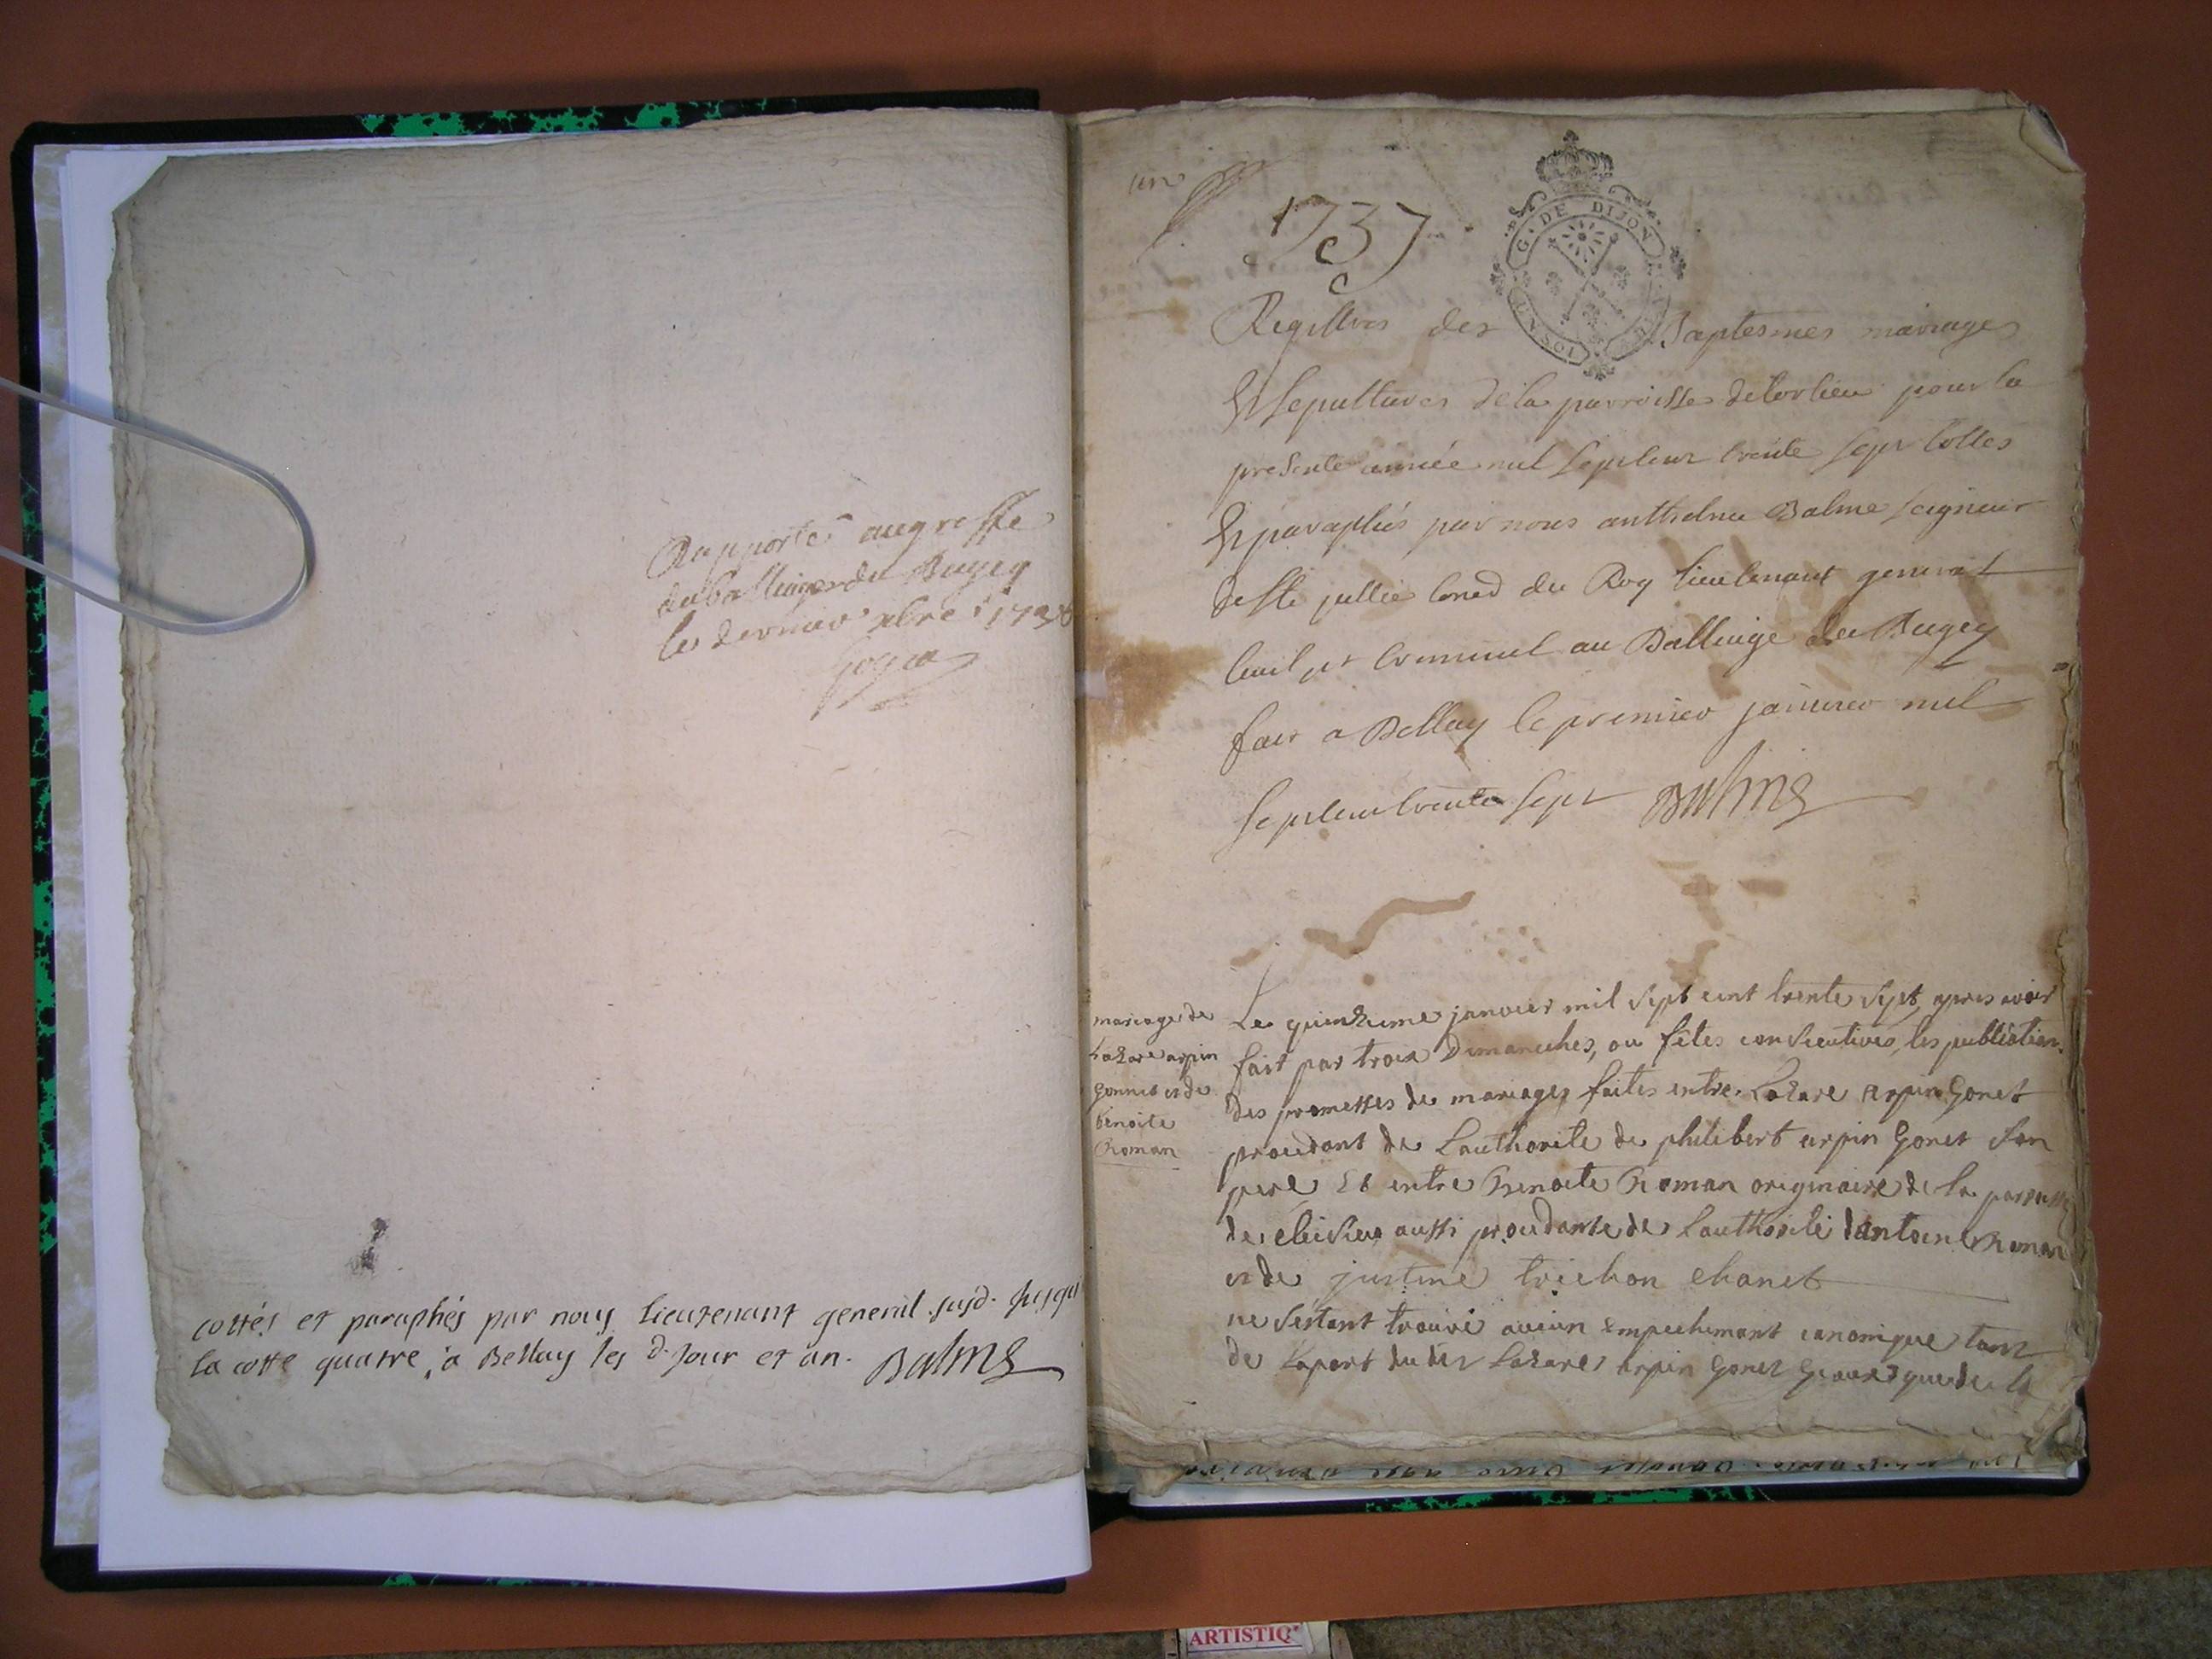 Rapporté au greffe
du balliage du Bugey
le dernier xbre 1736
cottés et paraphés par nous Lieutenant general susd. jusqu'a
la cotte quatre, a Bellay les d. jour et an. Balme
un
1737
G. DE DIJON
Registres des Baptesmes mariages
Et sepultures de la parroisse de Corlieu pour la
presente année mil sept cent trente sept Cottes
Et paraphés par nous anthelme Balme seigneur
de Ste jullie Conер du Roy lieutenant general
Civil et Criminel au Balliage du Bugey
fait a Bellay le premier janvier mil
sept cent trente sept Balme
mariage de
Lazare arpin
gonnet et de
benoite
Roman
Le quinzieme janvier mil sept cent trente sept, apres avoir
fait par trois Dimanches, ou fêtes consecutives, les publication
des promesses de mariages faites entre Lazare arpin Gonet
procedant de Lauthorite de philibert arpin Gonet son
pere Et entre Benoite Roman originaire de la parroisse
de aussi procedante de Lauthorité dantoine Roman
et de justine trichon chanet
ne s'estant trouvé aucun empechemant canonique tant
de la part du dit Lazare arpin Gonet que de la
ARTISTIQ'